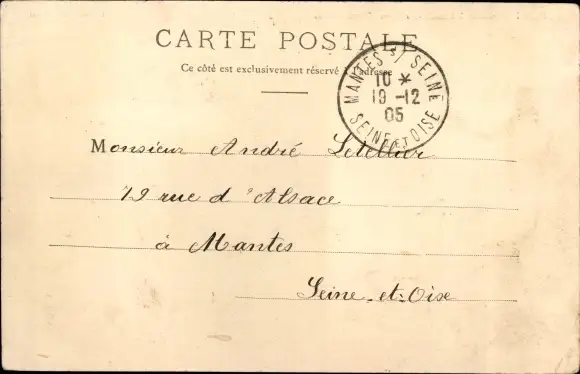 CARTE POSTALE
Ce côté est exclusivement réservé à l'adresse
MANTES S/ SEINE
10 *
19 -12
05
SEINE ET OISE
Monsieur André Letellier
19 rue d'Alsace
à Mantes
Seine-et-Oise